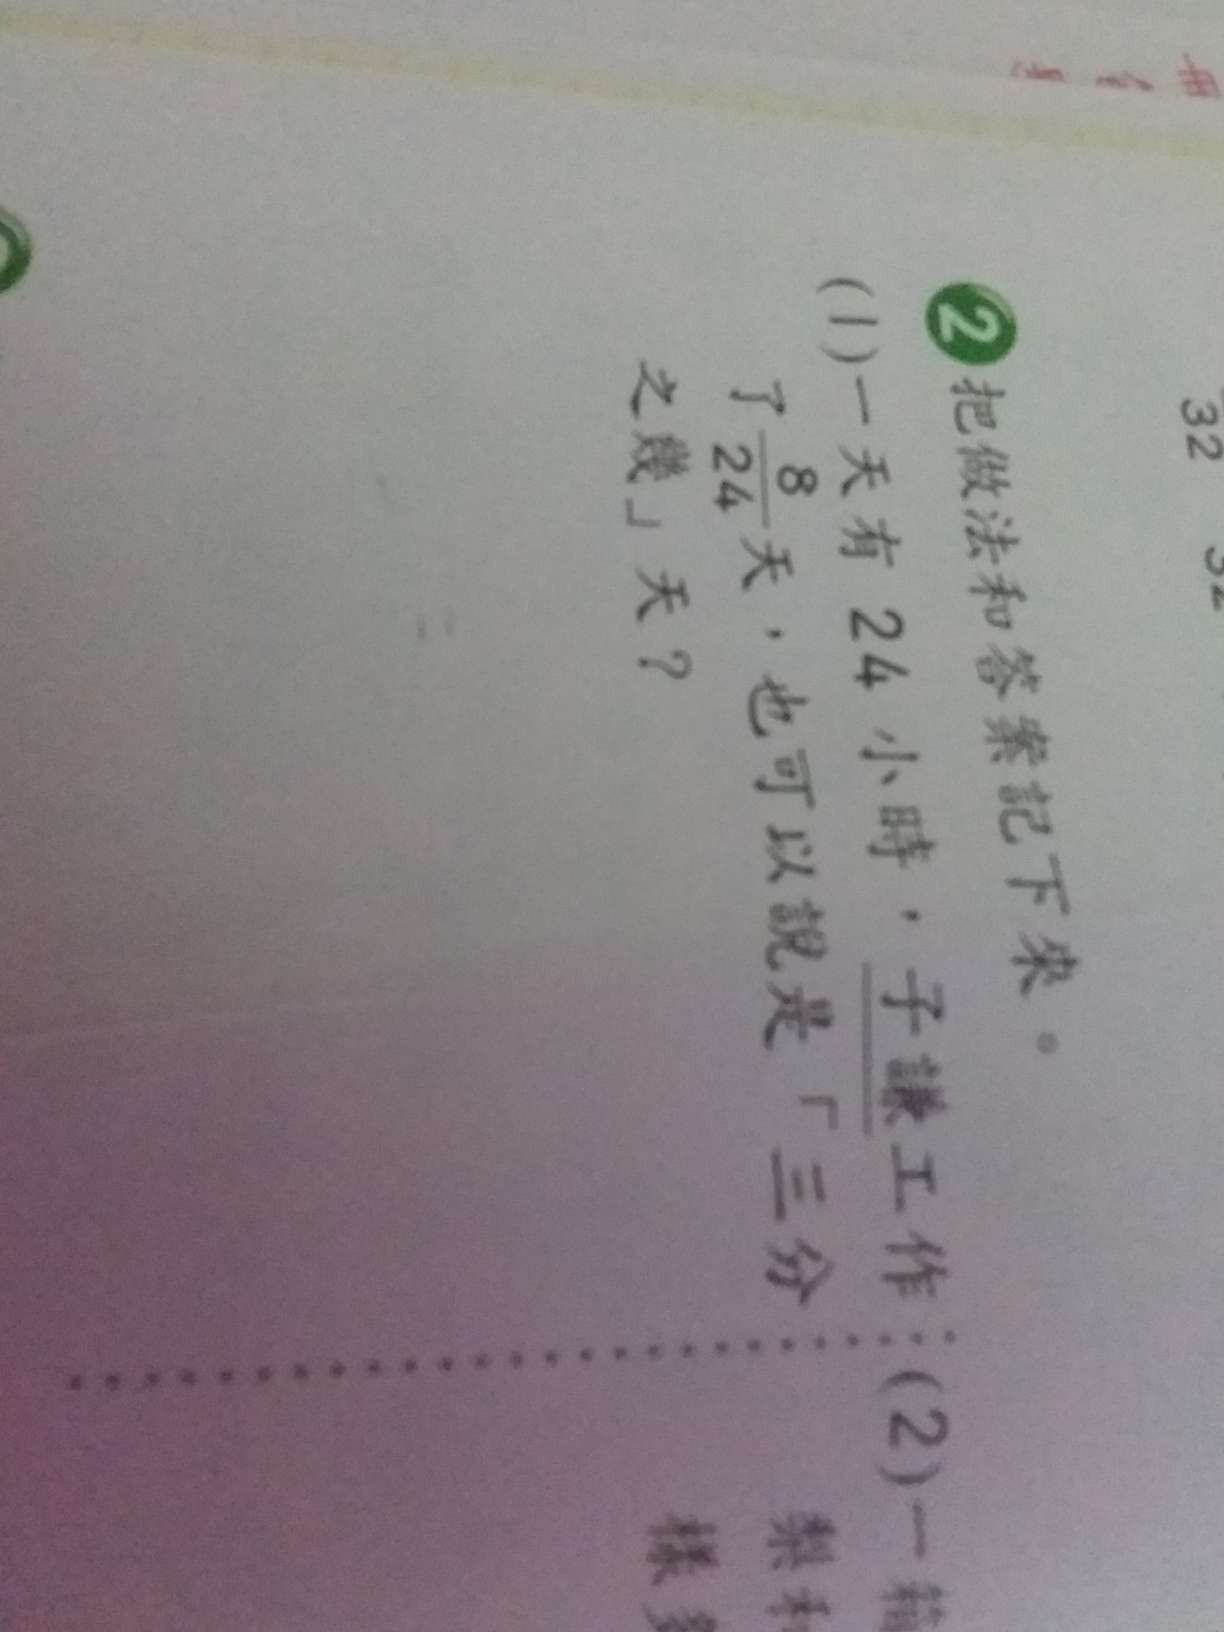 32
❷把做法和答案記下來。
(1)一天有 24 小時，子謙工作
了8/24天，也可以說是「三分
之幾」天？
(2)一箱
梨和
樣多